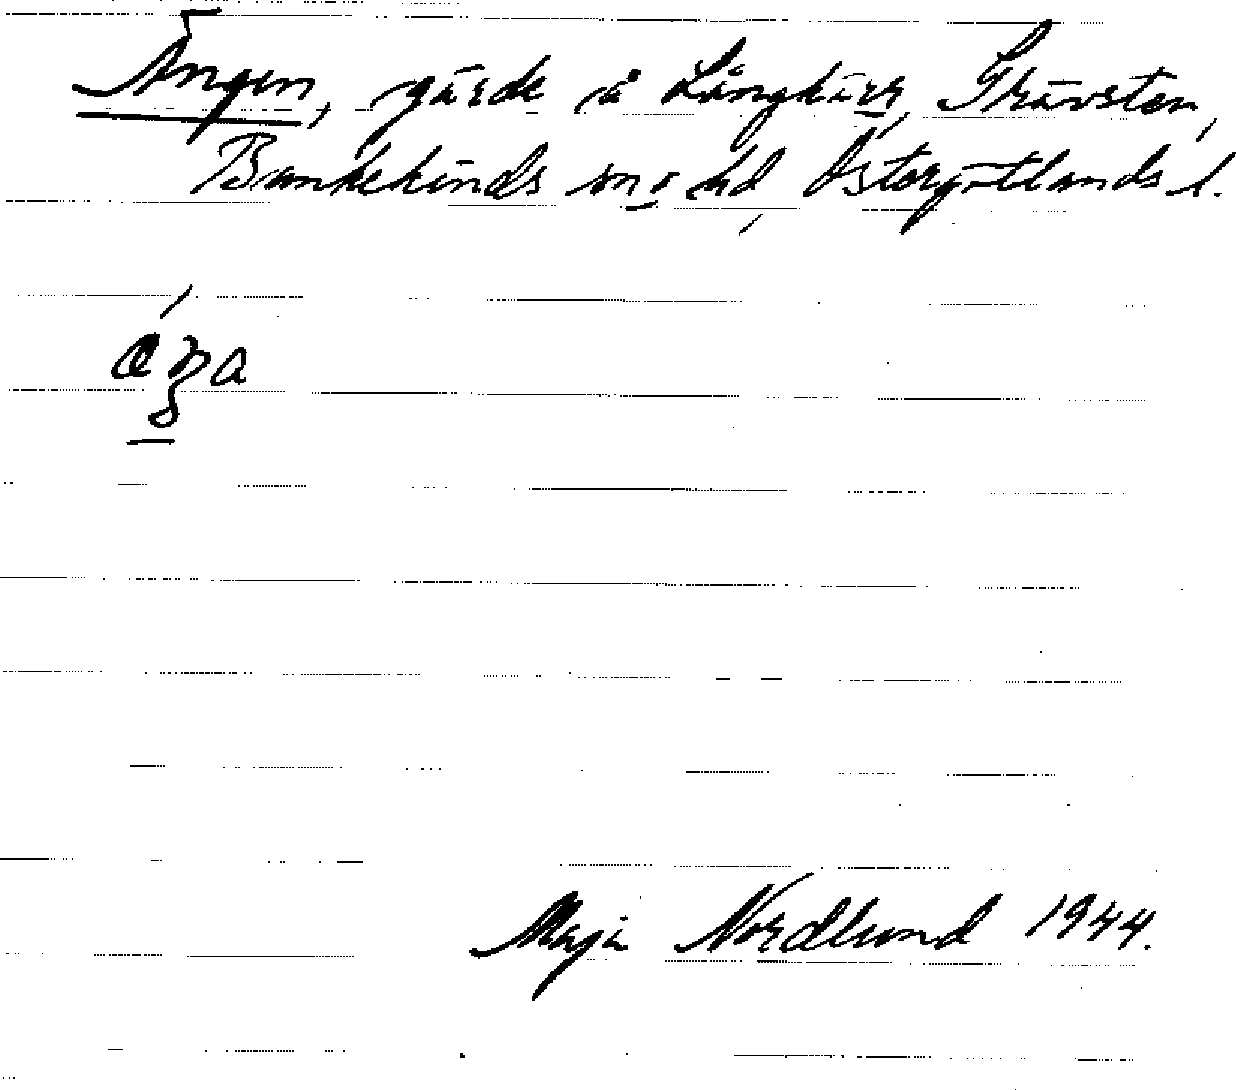 Ängen, gärde å Långkärr, Grävsten,
Bankekinds sn o hd, Östergötlands l.
Maja Nordlund 1944.